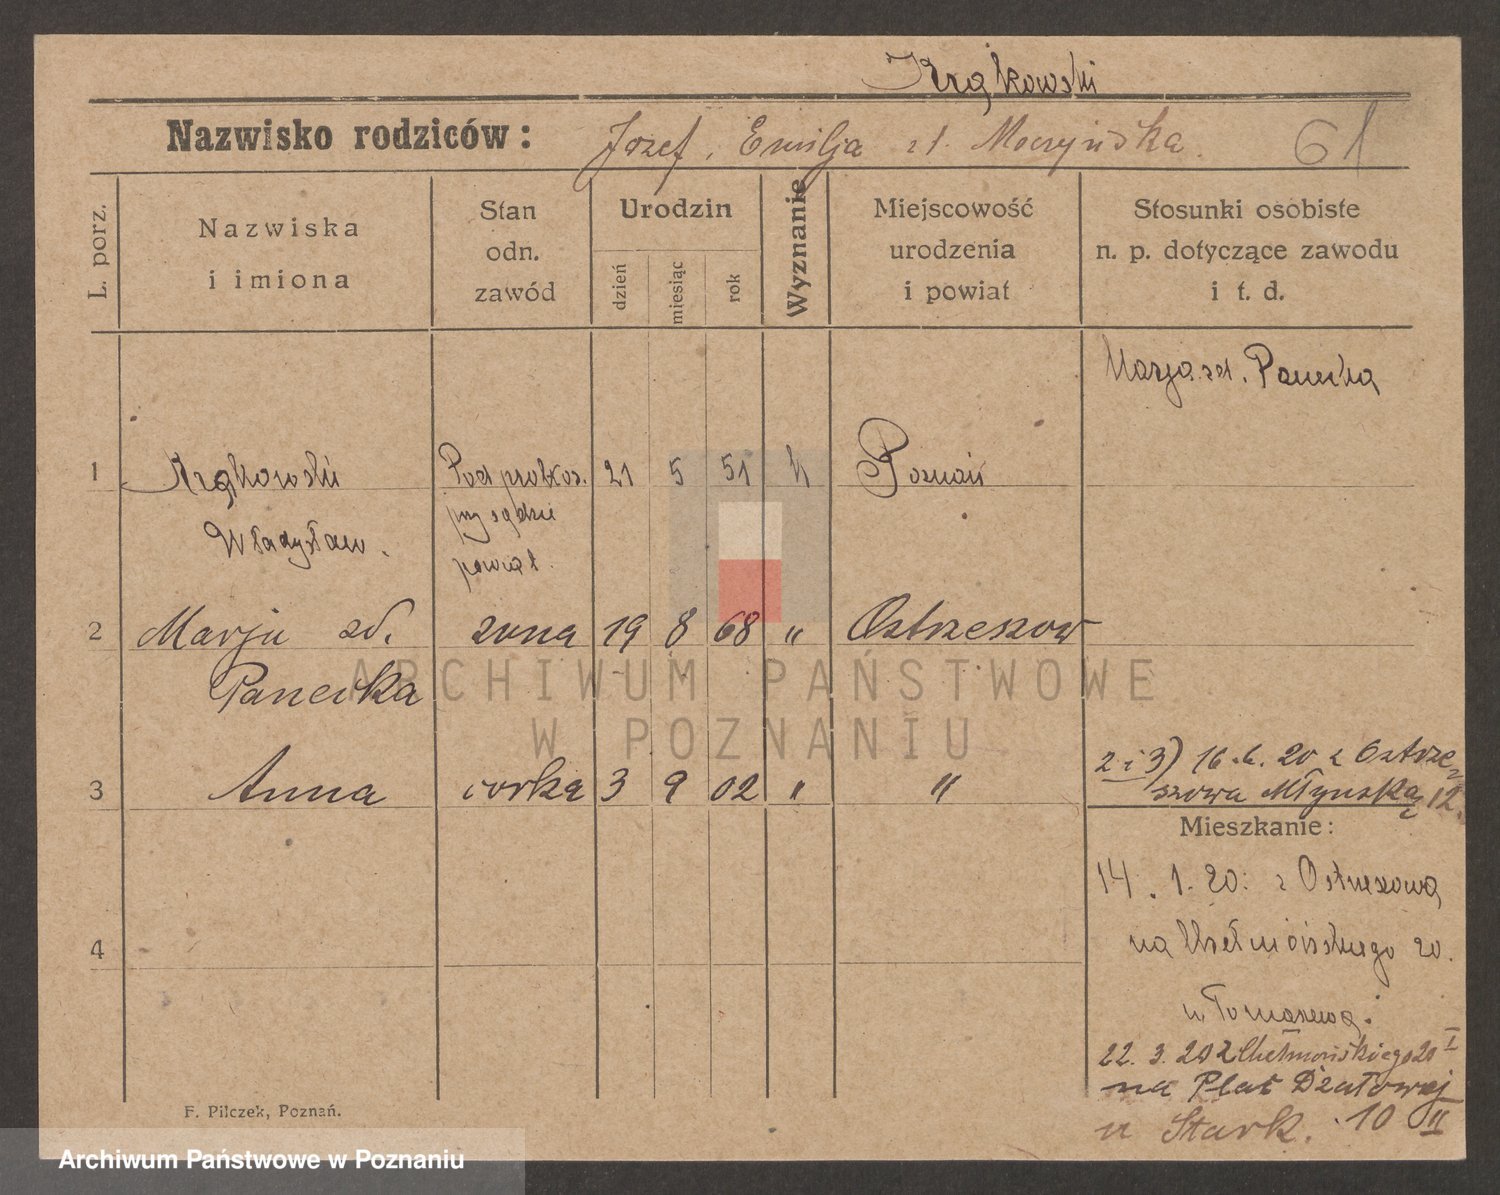 Krąkowski
Nazwisko rodziców: Józef, Emilja zd. Moczyńska. 61
L. porz.
Nazwiska
i imiona
Stan
odn.
zawód
Urodzin
dzień
miesiąc
rok
Wyznanie
Miejscowość
urodzenia
i powiat
Stosunki osobiste
n. p. dotyczące zawodu
i t. d.
Marja zd. Panecka
1 Krąkowski Pod probkos. 21 5 51 k Poznań
Władysław. przy sądzie
powiat.
2 Marja zd. zona 19 8 68 " Ostrzeszow
Panecka
2 i 3) 16.6.20 z Ostrze-
3 Anna corka 3 9 02 " "
szowa Młyńska 12.
Mieszkanie:
14. 1. 20. z Ostrzeszowa
na Chełmońskiego 20.
4
u Tomaszewa.
22. 3. 20 z Chełmońskiego 20 I
na Plac Działowej
u Stark. 10 II
F. Pilczek, Poznań.
ARCHIWUM PAŃSTWOWE
W POZNANIU
Archiwum Państwowe w Poznaniu